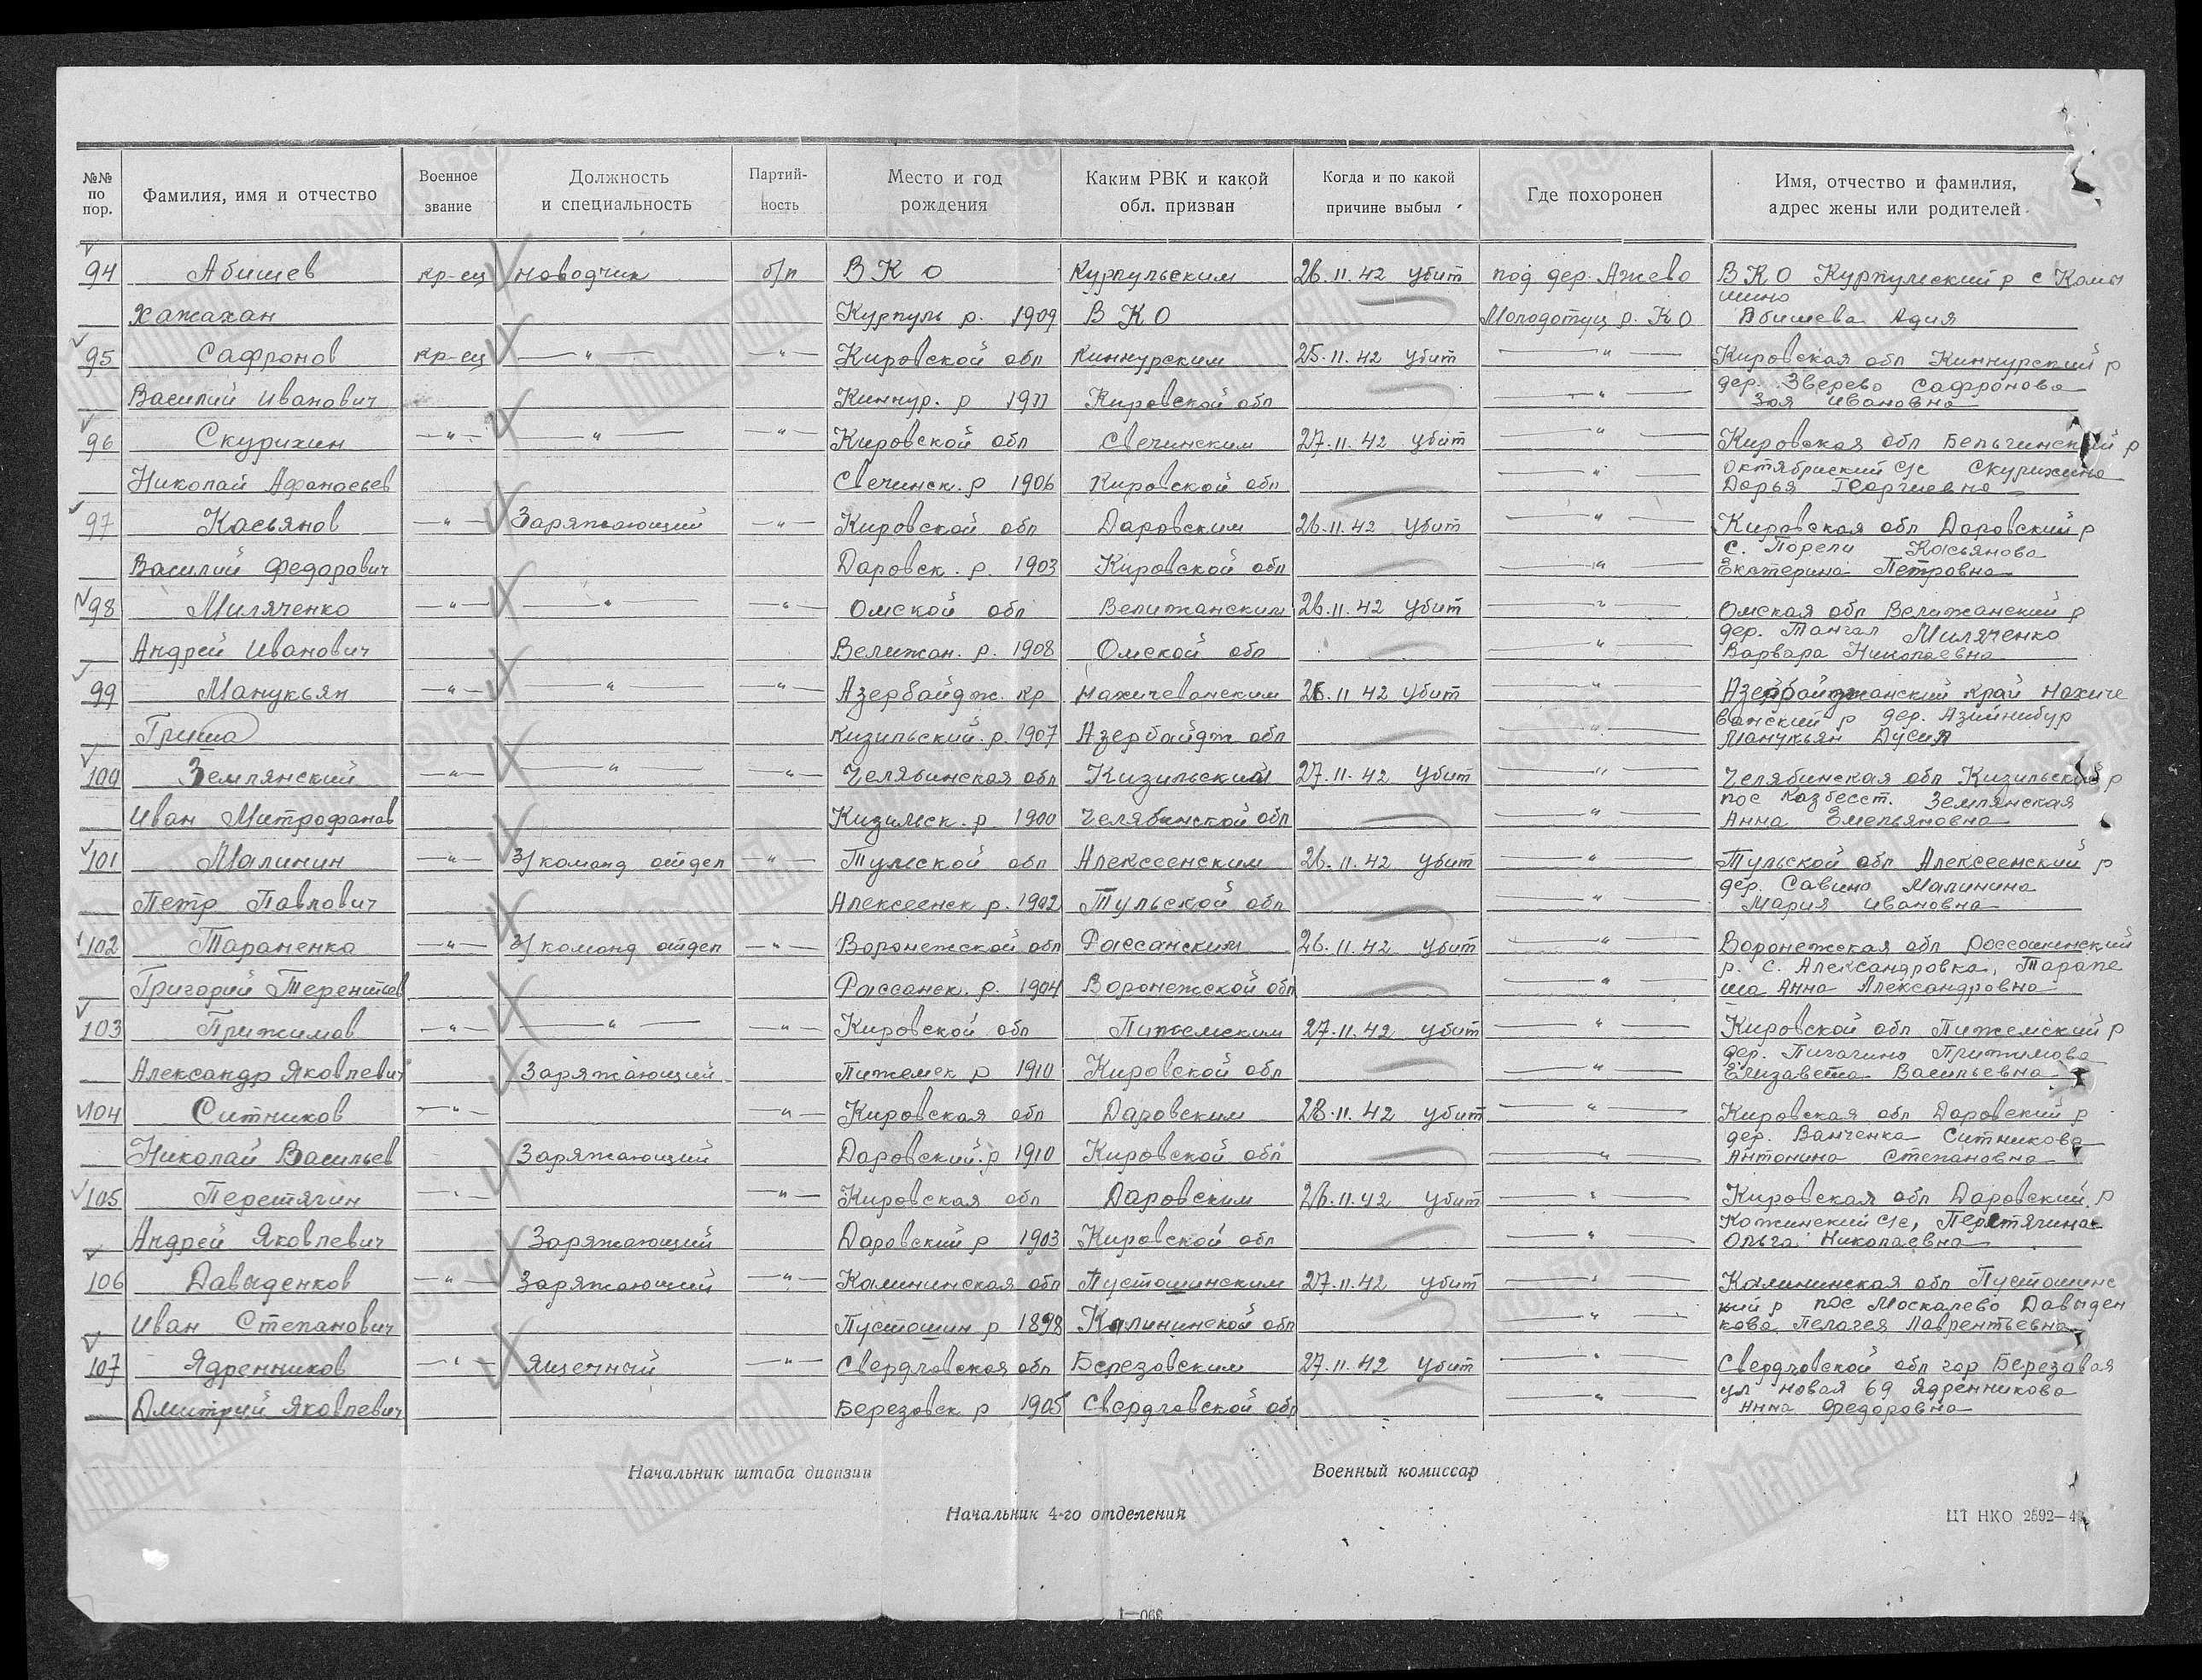 №№ по пор. Фамилия, имя и отчество Военное звание Должность и специальность Партийность Место и год рождения Каким РВК и какой обл. призван Когда и по какой причине выбыл Где похоронен Имя, отчество и фамилия, адрес жены или родителей
94 Абишев кр-ец наводчик б/п ВКО Курпульским 26.11.42 убит под дер. Ажево ВКО Курпулмский р с Камы
шино
Хажахан Курпуль р. 1909 ВКО Молодотуц р. КО Абишева Адия
95 Сафронов кр-ец —"— —"— Кировской обл Кикнурским 25.11.42 убит —"— Кировская обл Кикнурский р
дер. Зверево Сафронова
Василий Иванович Кикнур. р 1911 Кировской обл —"— Зоя Ивановна
96 Скурихин —"— —"— —"— Кировской обл Свечинским 27.11.42 убит —"— Кировская обл Бельчинский р
Октябриский с/с Скурихина
Николай Афанасьев Свечинск. р 1906 Кировской обл —"— Дарья Георгиевна
97 Касьянов —"— Заряжающий —"— Кировской обл Даровским 26.11.42 убит —"— Кировская обл Даровский р
с. Порели Касьянова
Василий Федорович Даровск. р. 1903 Кировской обл —"— Екатерина Петровна
98 Миляченко —"— —"— —"— Омской обл Велижанским 26.11.42 убит —"— Омская обл Велижанский р
дер. Тангал Миляченко
Андрей Иванович Велижан. р. 1908 Омской обл —"— Варвара Николаевна
99 Манукьян —"— —"— —"— Азербайдж. кр Нахичеванским 26.11.42 убит —"— Азербайджанский край Нахиче
ванский р дер. Азийнибур
Гриша Кизильский р. 1907 Азербайдж обл —"— Манукьян Дусия
100 Землянский —"— —"— —"— Челябинская обл Кизильский 27.11.42 убит —"— Челябинская обл Кизильский р
пос Казбесст. Землянская
Иван Митрофанов Кизильск. р 1900 Челябинской обл —"— Анна Емельяновна
101 Малинин —"— З/команд отдел —"— Тульской обл Алексеенским 26.11.42 убит —"— Тульской обл Алексеенский р
дер. Савино Малинина
Петр Павлович Алексеенск р. 1902 Тульской обл —"— Мария Ивановна
102 Тараненко —"— З/команд отдел —"— Воронежской обл Рассанским 26.11.42 убит —"— Воронежская обл Россошинский
р. с. Александровка, Тарапе
Григорий Терентьев Рассанск. р. 1904 Воронежской обл —"— ша Анна Александровна
103 Прижимов —"— —"— —"— Кировской обл Пижемским 27.11.42 убит —"— Кировской обл Пижемский р
дер. Пигачино Прижимова
Александр Яковлевич Заряжающий Пижемск р 1910 Кировской обл —"— Елизавета Васильевна
104 Ситников —"— —"— Кировская обл Даровским 28.11.42 убит —"— Кировская обл Даровский р
дер. Ванченка Ситникова
Николай Васильев Заряжающий Даровский р 1910 Кировской обл —"— Антонина Степановна
105 Перетягин —"— —"— Кировская обл Даровским 26.11.42 убит —"— Кировская обл Даровский р
Кожинский с/с, Перетягина
Андрей Яковлевич Заряжающий Даровский р 1903 Кировской обл —"— Ольга Николаевна
106 Давыденков —"— Заряжающий —"— Калининская обл Пустошинским 27.11.42 убит —"— Калининская обл Пустошинс
кий р пос Москалево Давыден
Иван Степанович Пустошин р 1898 Калининской обл —"— кова Пелагея Лаврентьевна
107 Ядренников —"— Ящечный —"— Свердловская обл Березовским 27.11.42 убит —"— Свердловской обл гор Березовая
ул Новая 69 Ядренникова
Дмитрий Яковлевич Березовск р 1905 Свердловской обл —"— Анна Федоровна
Начальник штаба дивизии Военный комиссар
Начальник 4-го отделения ЦТ НКО 2592—4